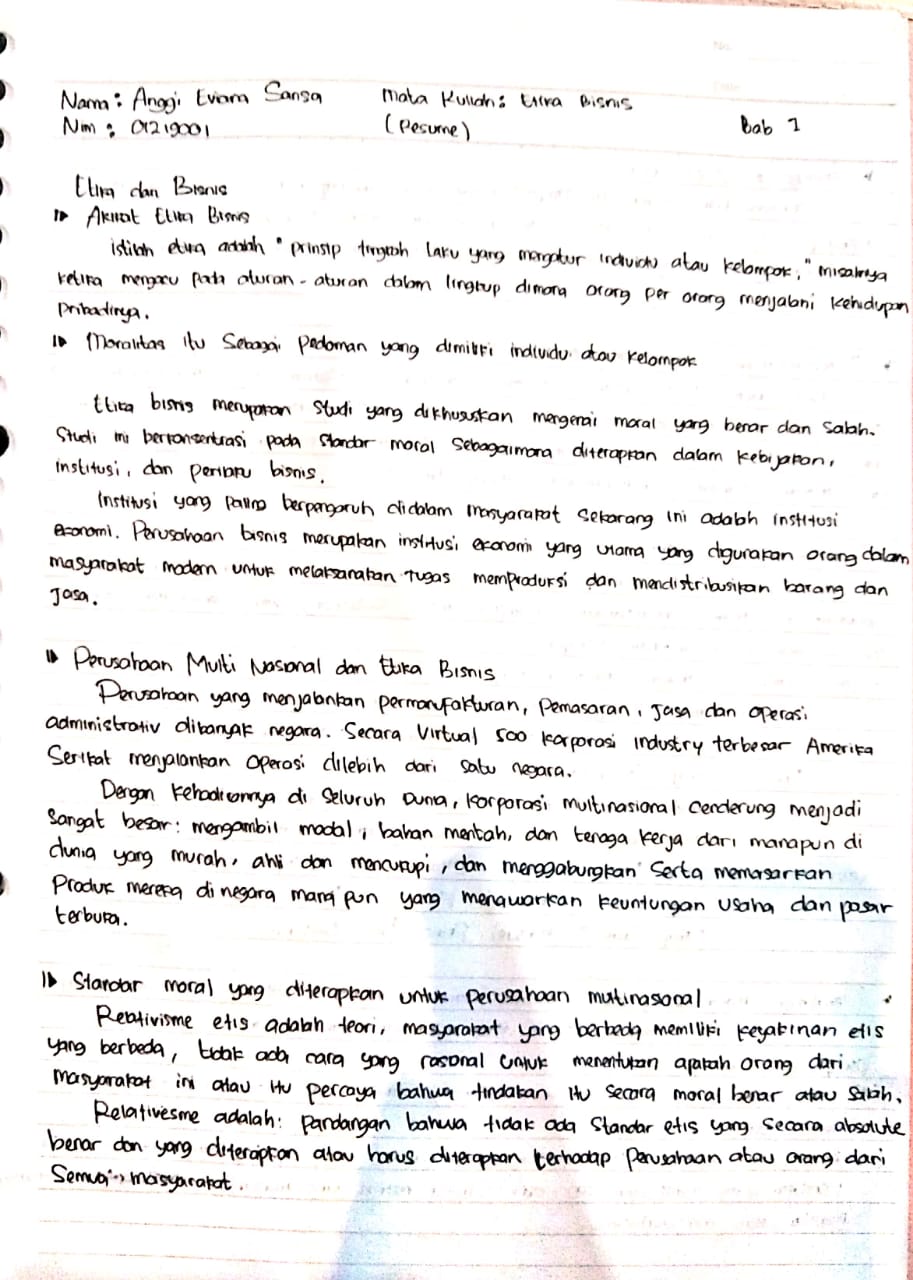 Nama : Anggi Eviam Sansa Mata Kuliah : Etika Bisnis
Nim : 01219001 (Resume) Bab 1
Etika dan Bisnis
Akirat Etika Bisnis
istilah etika adalah "prinsip tingkah laku yang mengatur individu atau kelompok," misalnya
ketika mengacu pada aturan-aturan dalam lingkup dimana orang per orang menjalani kehidupan
pribadinya.
Moralitas itu sebagai pedoman yang dimiliki individu atau kelompok
Etika bisnis merupakan studi yang dikhususkan mengenai moral yang benar dan salah.
Studi ini berkonsentrasi pada standar moral sebagaimana diterapkan dalam kebijakan,
institusi, dan perilaku bisnis.
Institusi yang paling berpengaruh didalam masyarakat sekarang ini adalah institusi
ekonomi. Perusahaan bisnis merupakan institusi ekonomi yang utama yang digunakan orang dalam
masyarakat modern untuk melaksanakan tugas memproduksi dan mendistribusikan barang dan
Jasa.
Perusahaan Multi Nasional dan Etika Bisnis
Perusahaan yang menjalankan permanufakturan, pemasaran, jasa dan operasi
administrativ dibanyak negara. Secara virtual 500 korporasi industry terbesar Amerika
Serikat menjalankan operasi dilebih dari satu negara.
Dengan kehadirannya di seluruh dunia, korporasi multinasional cenderung menjadi
sangat besar: mengambil modal, bahan mentah, dan tenaga kerja dari manapun di
dunia yang murah, ahli dan mencukupi, dan menggabungkan serta memasarkan
Produk mereka di negara mana pun yang menawarkan keuntungan usaha dan pasar
terbuka.
Standar moral yang diterapkan untuk perusahaan multinasional
Reativisme etis adalah teori, masyarakat yang berbeda memiliki keyakinan etis
yang berbeda, tidak ada cara yang rasonal untuk menentukan apakah orang dari
masyarakat ini atau itu percaya bahwa tindakan itu secara moral benar atau salah.
Relativesme adalah: pandangan bahwa tidak ada standar etis yang secara absolute
benar dan yang diterapkan atau harus diterapkan terhadap perusahaan atau orang dari
Semua masyarakat.